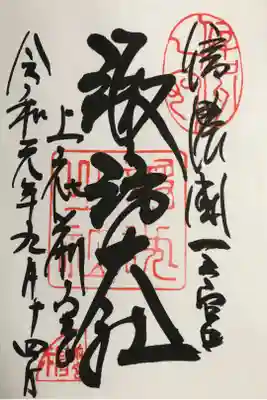 信濃國一之宮
諏訪大社
上社前宮
令和元年九月十四日